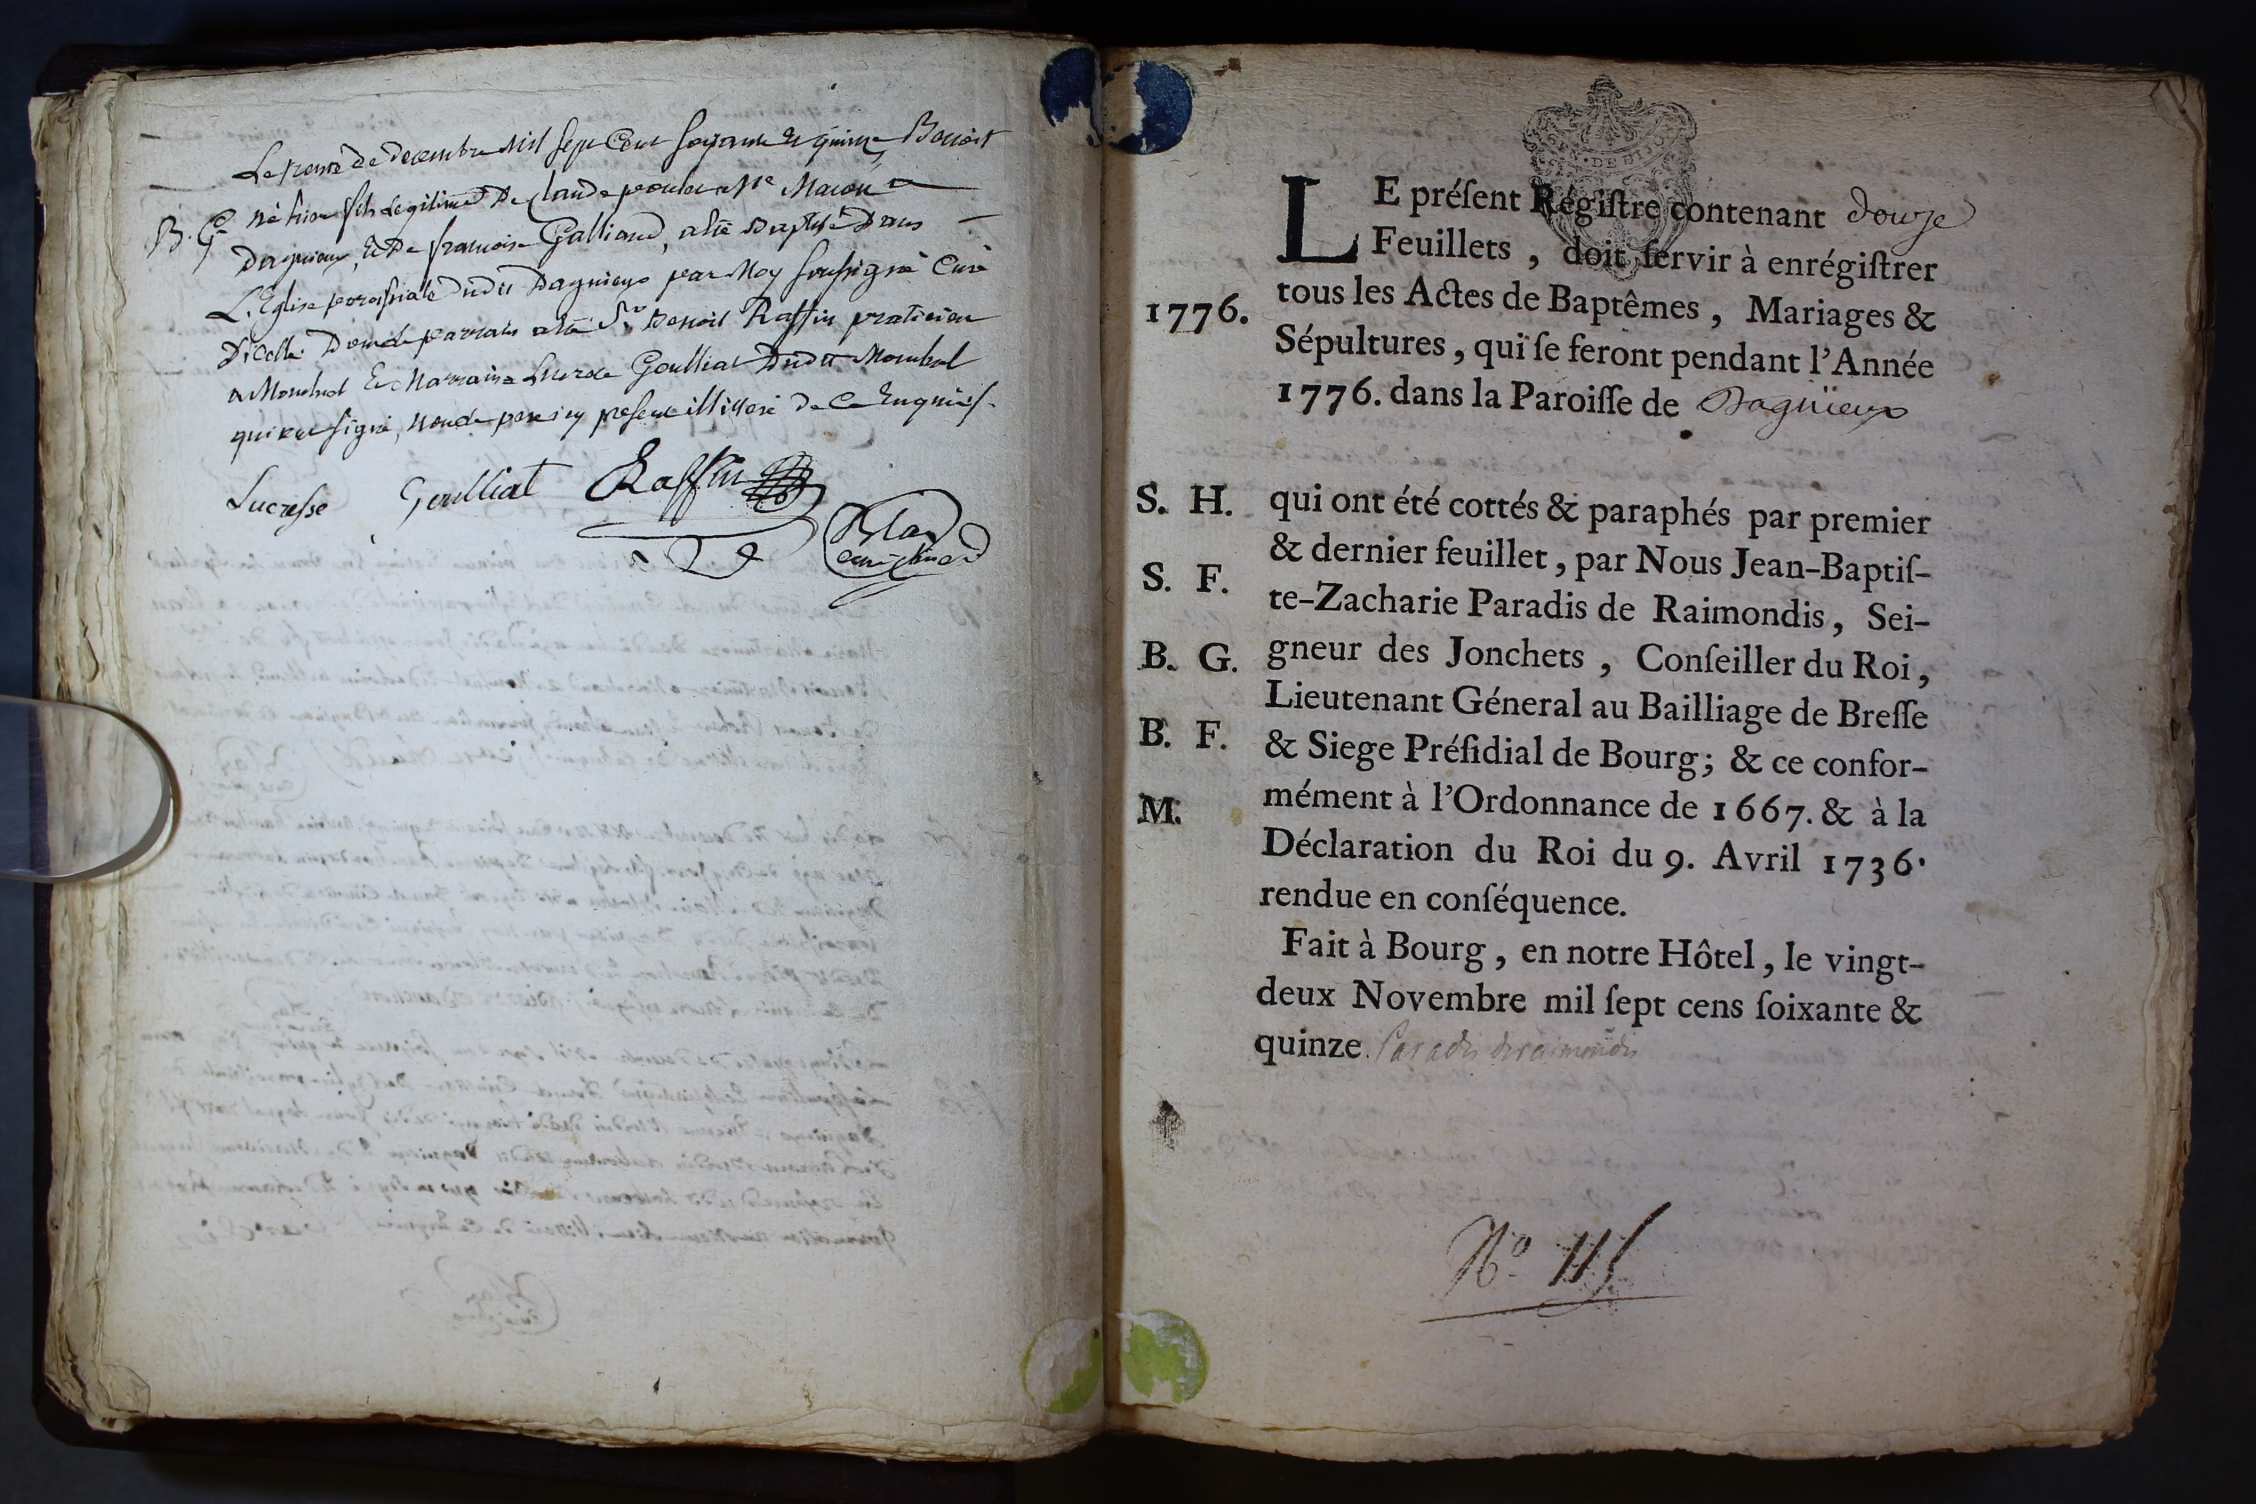 Le trente de decembre mil sept Cent soixante et quinze Benoit
B. G. né hier fils Legitime De Claude
Dagnieux, et De francoise Galliand, a été Baptisé Dans
L'Eglise paroissiale dudit Dagnieux par Moy soussigné Curé
D'icelle. parrain a été Sr. Benoit Raffin praticien
a Montluel Et Marraine Goulliat Dudit Montluel
qui ont signé, non le pere illiteré De Ce Enquis.
Lucresse Goulliat Raffin
Blas
curé
LE préſent Régiſtre contenant douze
Feuillets, doit ſervir à enrégiſtrer
1776. tous les Actes de Baptêmes, Mariages &
Sépultures, qui ſe feront pendant l'Année
1776. dans la Paroiſſe de Dagnïeux
S. H. qui ont été cottés & paraphés par premier
& dernier feuillet, par Nous Jean-Baptiſ-
S. F. te-Zacharie Paradis de Raimondis, Sei-
B. G. gneur des Jonchets, Conſeiller du Roi,
Lieutenant Géneral au Bailliage de Breſſe
B. F. & Siege Préſidial de Bourg; & ce confor-
M. mément à l'Ordonnance de 1667. & à la
Déclaration du Roi du 9. Avril 1736.
rendue en conſéquence.
Fait à Bourg, en notre Hôtel, le vingt-
deux Novembre mil ſept cens ſoixante &
quinze. Paradis deraimondis
No. 115